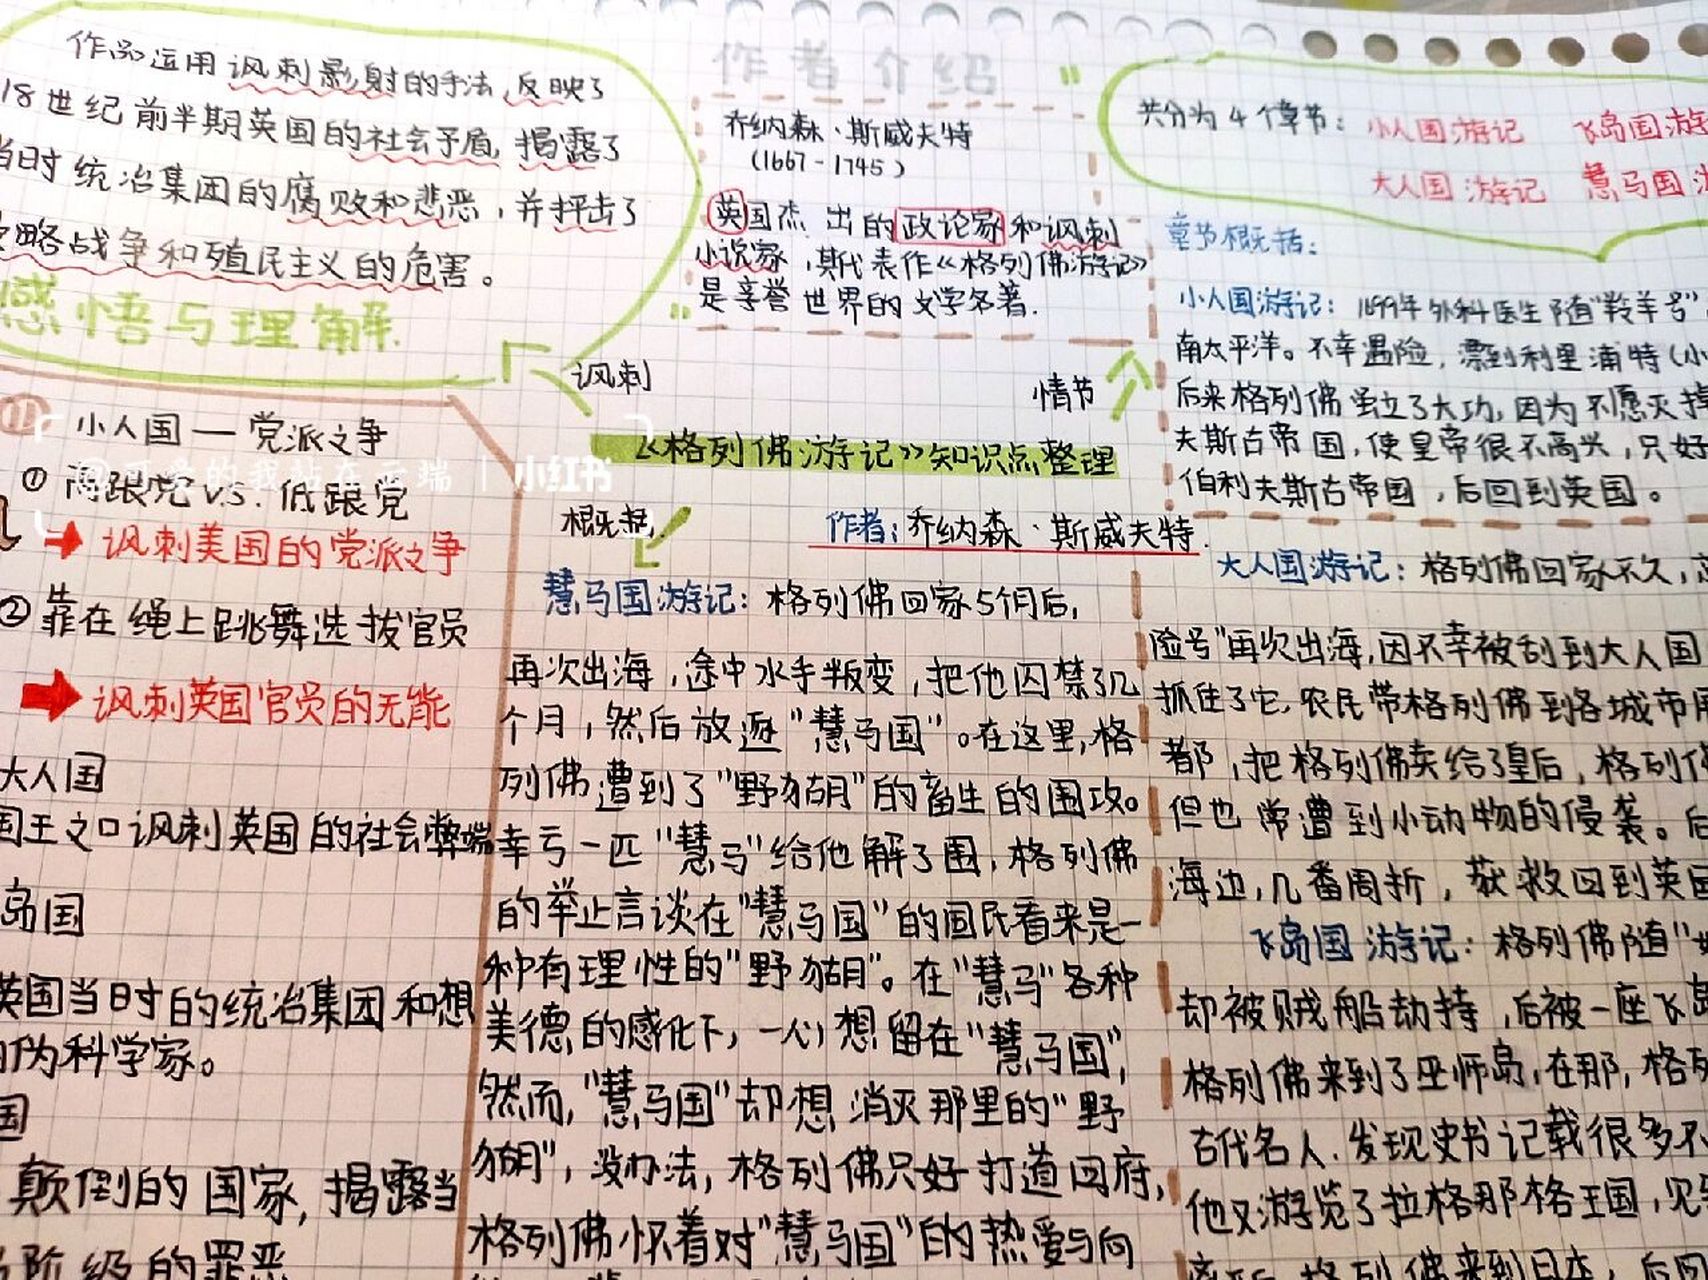 作品运用讽刺影射的手法,反映了
18世纪前半期英国的社会矛盾,揭露了
当时统治集团的腐败和悲恶,并抨击了
略战争和殖民主义的危害。
感悟与理解
作者介绍
乔纳森·斯威夫特
(1667-1745)
英国杰出的政论家和讽刺
小说家,其代表作《格列佛游记》
是享誉世界的文学名著.
共分为4个章节:小人国游记 飞岛国游
大人国游记 慧马国
章节概括:
小人国游记:1699年外科医生随"羚羊号"
南太平洋。不幸遇险,漂到利里浦特(小
后来格列佛坐立了大功,因为不愿灭掉
夫斯古帝国,使皇帝很不高兴,只好
伯利夫斯古帝国,后回到英国。
讽刺
情节
《格列佛游记》知识点整理
概括
作者:乔纳森·斯威夫特.
(1)
小人国—党派之争
@可爱的我站在云端 | 小红书
① 高跟党 v.s.低跟党
讽刺美国的党派之争
② 靠在绳上跳舞选拔官员
讽刺英国官员的无能
大人国
国王之口讽刺英国的社会弊端
岛国
英国当时的统治集团和想
伪科学家。
国
颠倒的国家,揭露当
阶级的罪恶
慧马国游记:格列佛回家5个月后,
再次出海,途中水手叛变,把他囚禁了几
个月,然后放逐"慧马国"。在这里,格
列佛遭到了"野猢"的畜生的围攻。
幸亏一匹"慧马"给他解了围,格列佛
的举止言谈在"慧马国"的国民看来是一
种有理性的"野猢"。在"慧马"各种
美德的感化下,一心想留在"慧马国",
然而,"慧马国"却想消灭那里的"野
猢",没办法,格列佛只好打道回府,
格列佛怀着对"慧马国"的热爱与向
大人国游记:格列佛回家不久,
险号"再次出海,因不幸被刮到大人国
抓住了它,农民带格列佛到各城市
都,把格列佛卖给了皇后,格列
但也常遭到小动物的侵袭。后
海边,几番周折,获救回到英国
飞岛国游记:格列佛随"
却被贼船劫持,后被一座飞岛
格列佛来到了巫师岛,在那,格列
古代名人.发现史书记载很多不
他又游览了拉格那格王国,见
离开 格列佛来到日本,后回